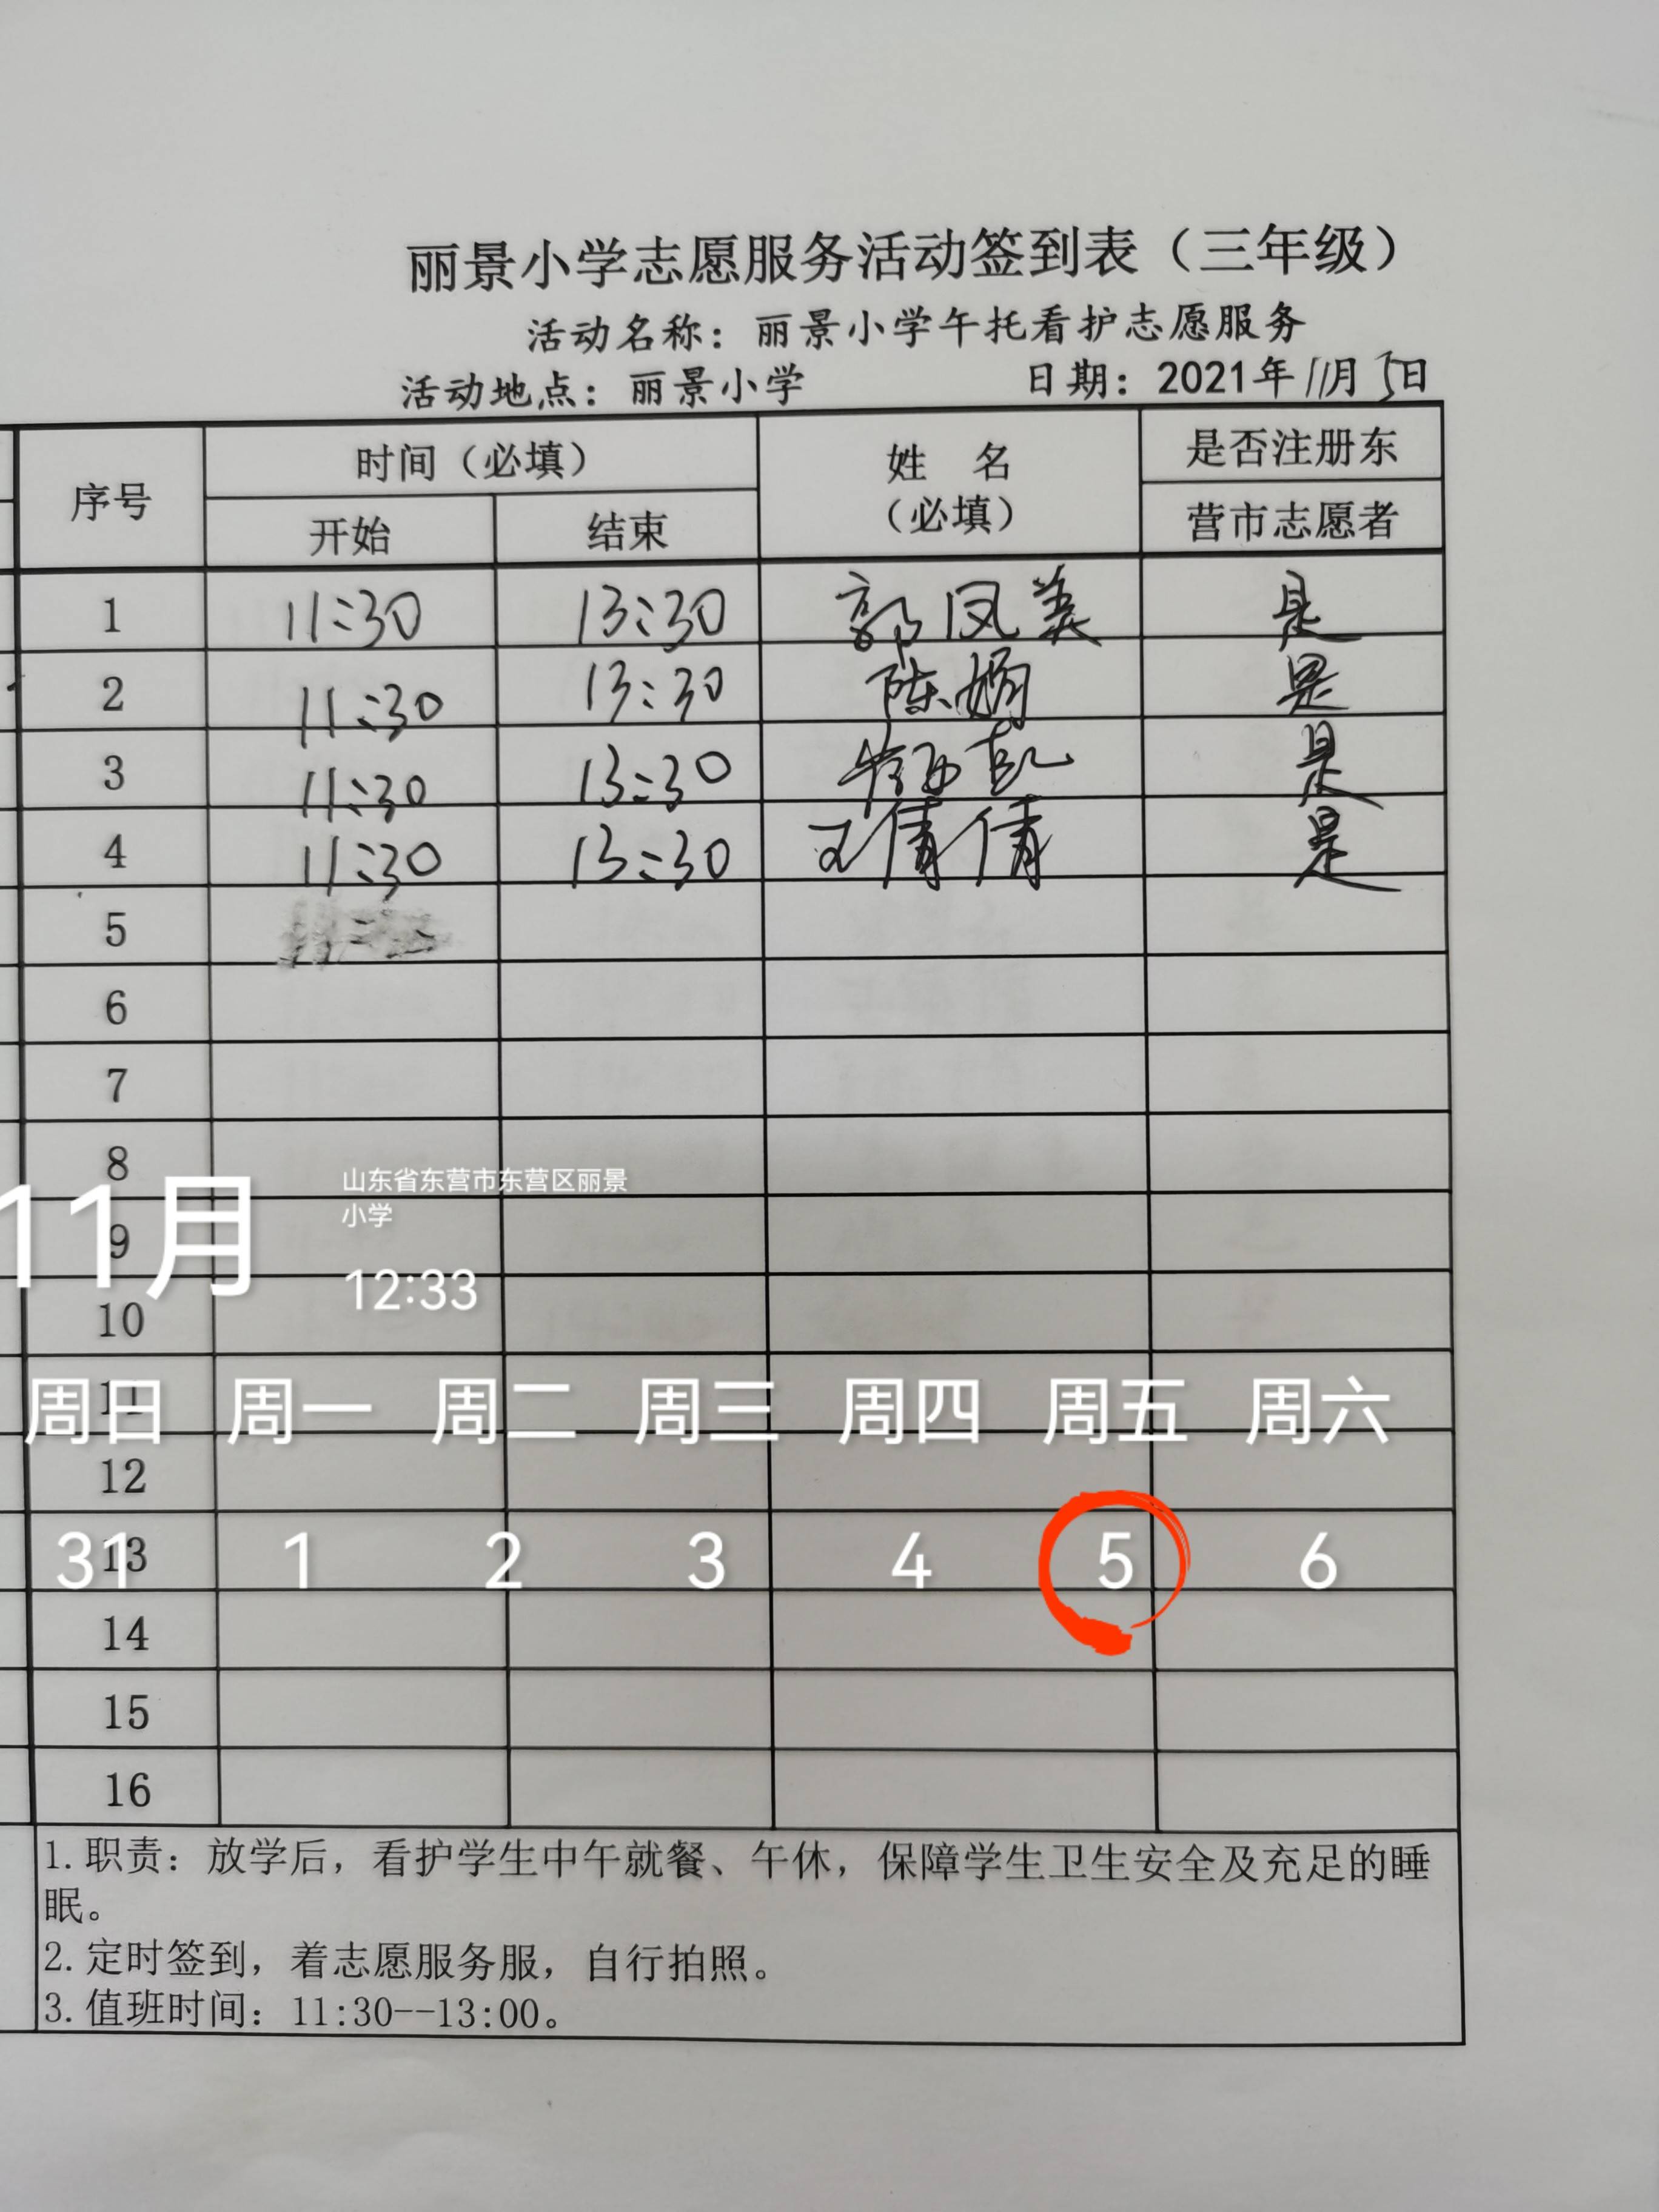 丽景小学志愿服务活动签到表（三年级）
活动名称：丽景小学午托看护志愿服务
活动地点：丽景小学 日期：2021年11月5日
序号 时间（必填） 姓 名（必填） 是否注册东营市志愿者
开始 结束
1 11:30 13:30 郭凤美 是
2 11:30 13:30 陈娟 是
3 11:30 13:30 是
4 11:30 13:30 王倩倩 是
5
6
7
8
9
10
11
12
13
14
15
16
11月
山东省东营市东营区丽景
小学
12:33
周日 周一 周二 周三 周四 周五 周六
31 1 2 3 4 5 6
1.职责：放学后，看护学生中午就餐、午休，保障学生卫生安全及充足的睡
眠。
2.定时签到，着志愿服务服，自行拍照。
3.值班时间：11:30--13:00。